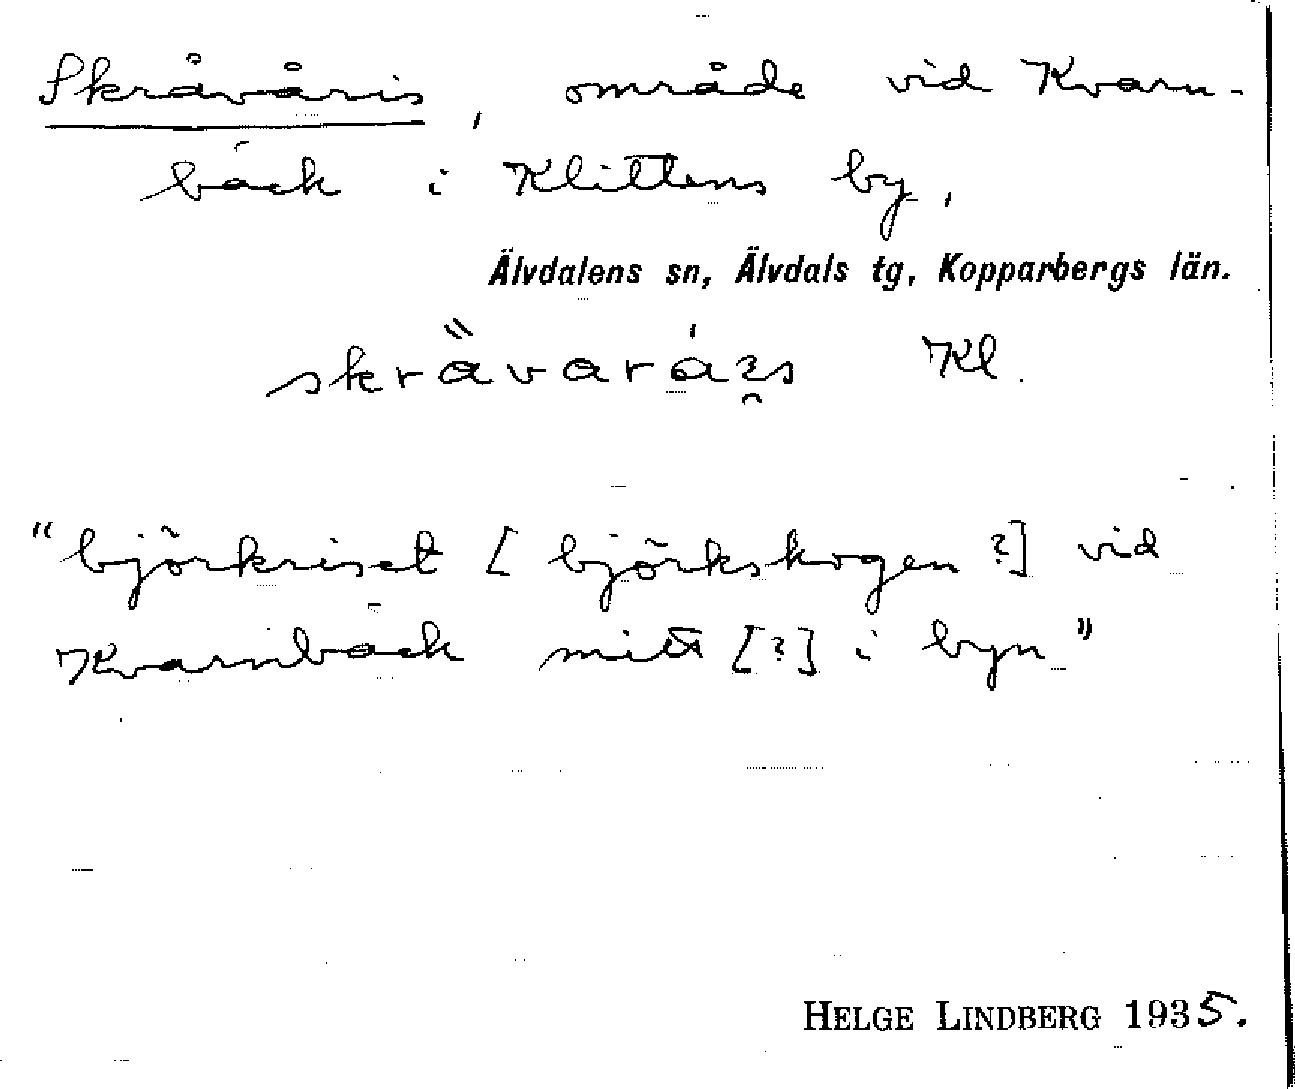 Skråvåris, område vid Kvarn-
bäck i Klittens by,
Älvdalens sn, Älvdals tg, Kopparbergs län.
Kl.
"björkriset [björkskogen ?] vid
Kvarnbäck mitt [?] i byn"
HELGE LINDBERG 1935.